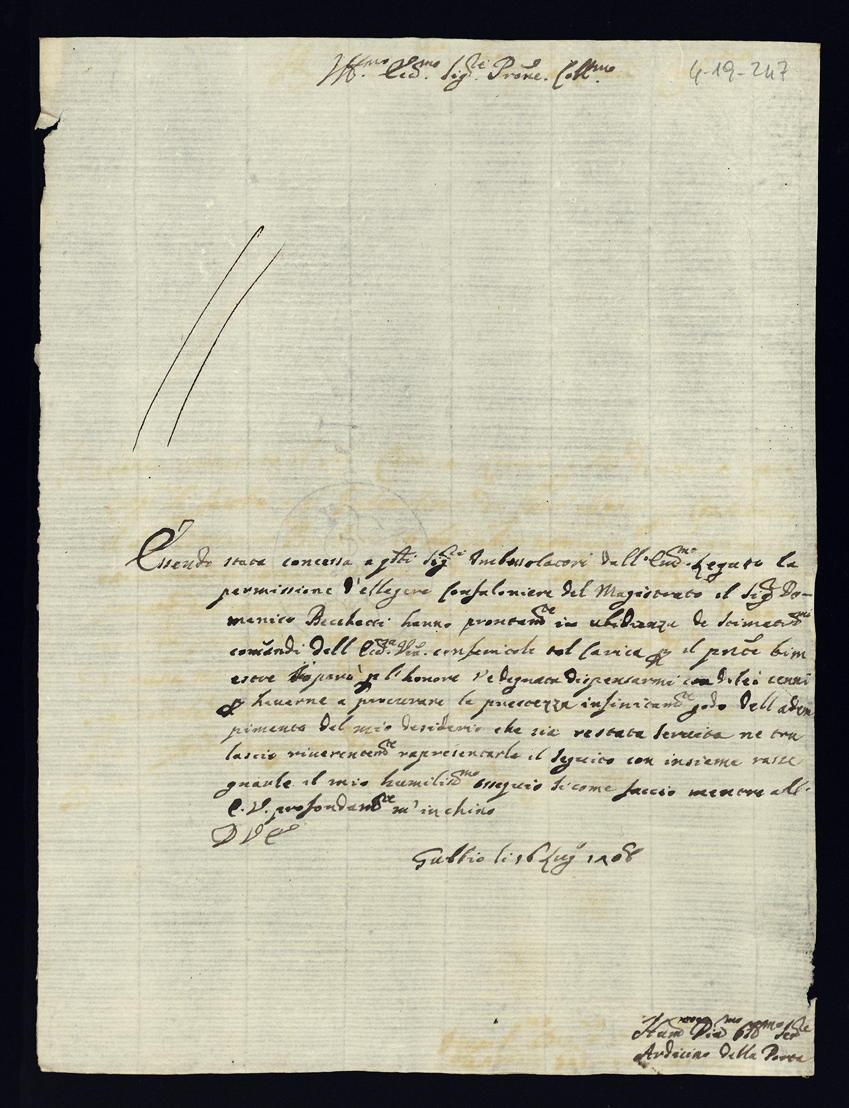 Ill.mo Ecc.mo Sig.re Prone. Coll.mo
4-19-247
Essendo stata concessa a q.sti Sig.ri Imbussolatori dall'Em.mo Legato la
permissione d'elleggere Confaloniere del Magistrato il Sig.r Do-
menico Becchetti hanno prontam.te in ubidienza de stimatiss.mi
comandi dell'Ecc.a V.ra conferitole tal Carica p il pnte bim
estre Io però p l'honore s'è degnata dispensarmi con di lei cenni
p haverne a procurare la prestezza infinitam.te godo dell'adem
pimento del mio desiderio che sia restata servita ne tra
lascio riverentem.te rapresentarle il seguito con insieme rasse
gnarle il mio humiliss.mo ossequio sicome faccio mentre all'
E.V. profondam.te m'inchino
D V E
Gubbio li 16 Lug.o 1708
Hum.mo Div.mo Obb.mo Ser.re
Ardicino della Porta